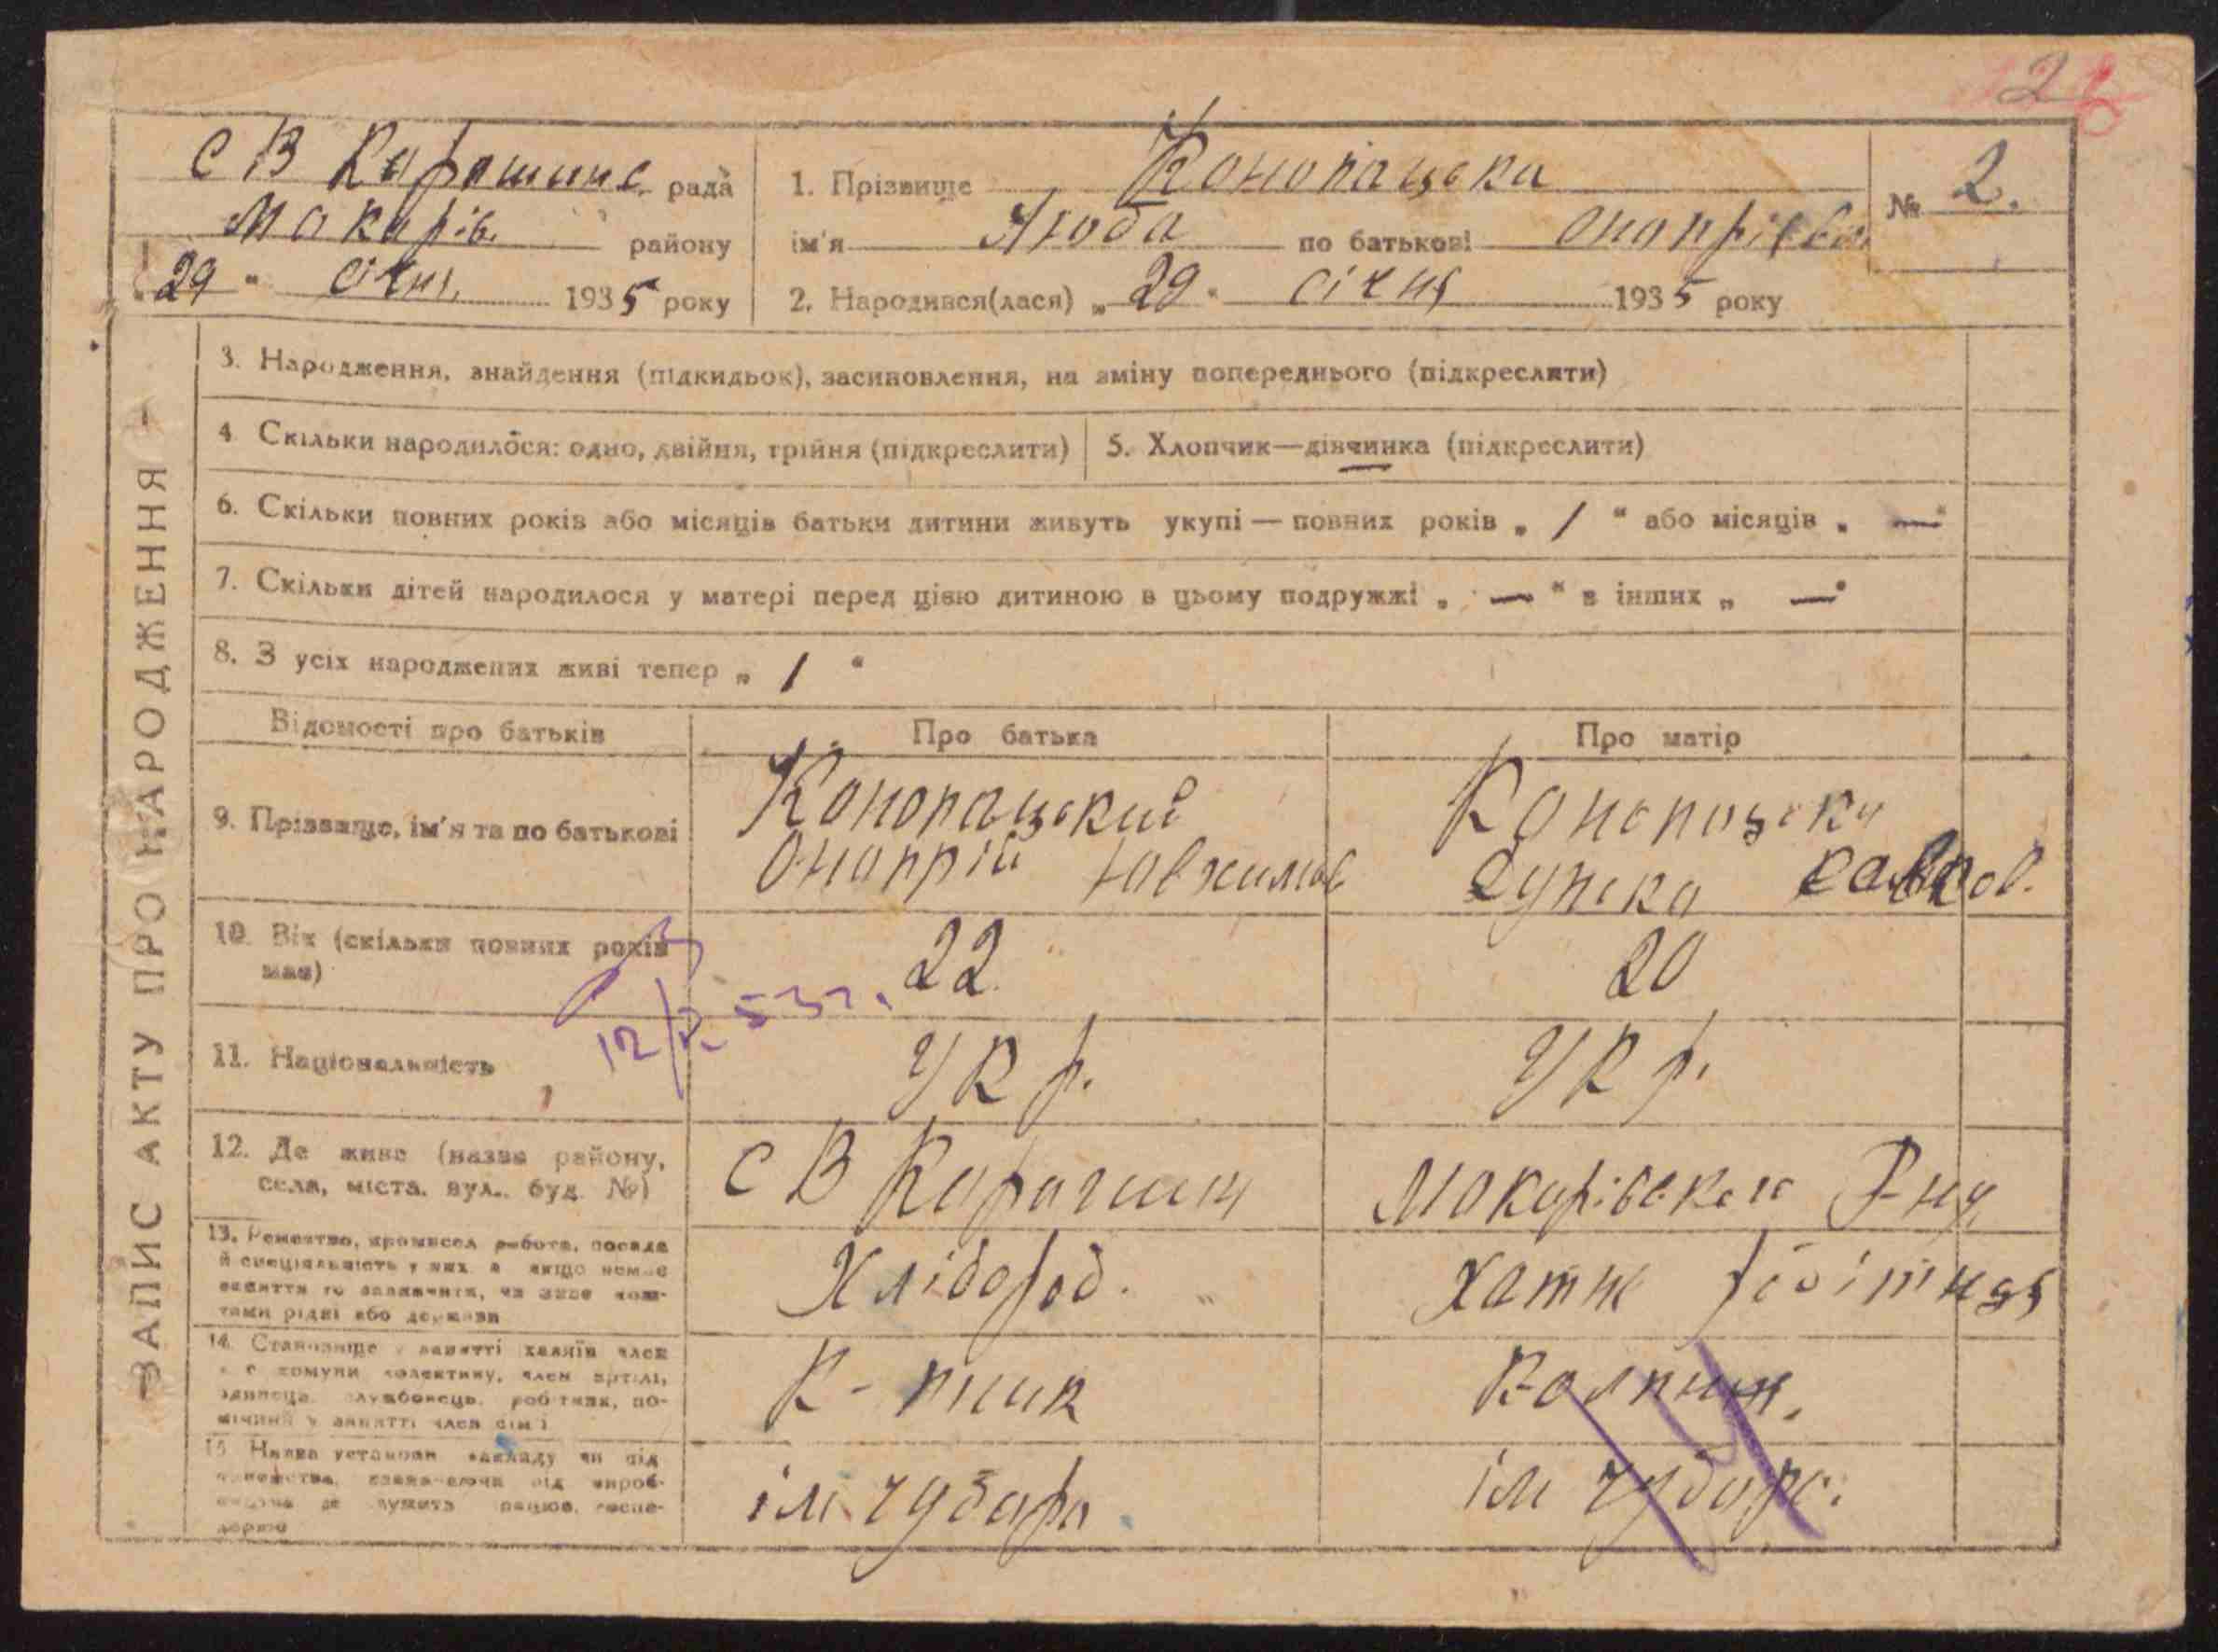 2
С В Карашинс. рада
Макарів. района
"29" січня 1935 року
1. Прізвище Конопацька
ім'я Люба по батькові Онопріївна
№ 2.
2. Народився(лася) „29" січня 1935 року
—ЗАПИС АКТУ ПРО НАРОДЖЕННЯ—
3. Народження, знайдення (підкидьок), засиновлення, на зміну попереднього (підкреслити)
4. Скільки народилося: одно, двійня, трійня (підкреслити)
5. Хлопчик—дівчинка (підкреслити)
6. Скільки повних років або місяців батьки дитини живуть укупі — повних років „ 1 " або місяців „ — "
7. Скільки дітей народилося у матері перед цією дитиною в цьому подружжі „ — " в інших „ — "
8. З усіх народжених живі тепер „ 1 "
Відомості про батьків
Про батька
Про матір
9. Прізвище, ім'я та по батькові
Конопацький
Онопрій Ювхимов
Конопацька
10. Вік (скільки повних років
має)
22
20
12/X-53г.
11. Національність
Укр.
Укр.
12. Де живе (назва району,
села, міста, вул., буд. №)
С В Карашин
Макарівського Р-ну
13. Ремество, промисел робота, посада
й спеціяльність у них, а якщо немає
заняття то зазначити, чи живе кош-
тами рідні або держави
Хлібороб.
Хатн робітниця
14. Становище у занятті хазяїн член
с.-г. комуни колективу, член артілі,
одинець, службовець, робітник, по-
мічний у занятті член сім'ї
К-тник
Колгосп.
15. Назва установи закладу чи під
приємства, зазначаючи від вироб-
ництва де служить працює, госпо-
дарює
ім. Чубаря
ім Чубаря.